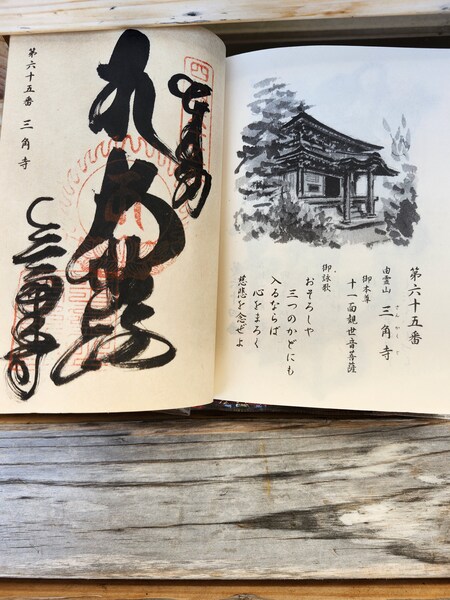 第六十五番
由霊山 三角寺
さんかくじ
御本尊
十一面観世音菩薩
御詠歌
おそろしや
三つのかどにも
入るならば
心をまろく
慈悲を念ぜよ
三角寺
第六十五番 三角寺